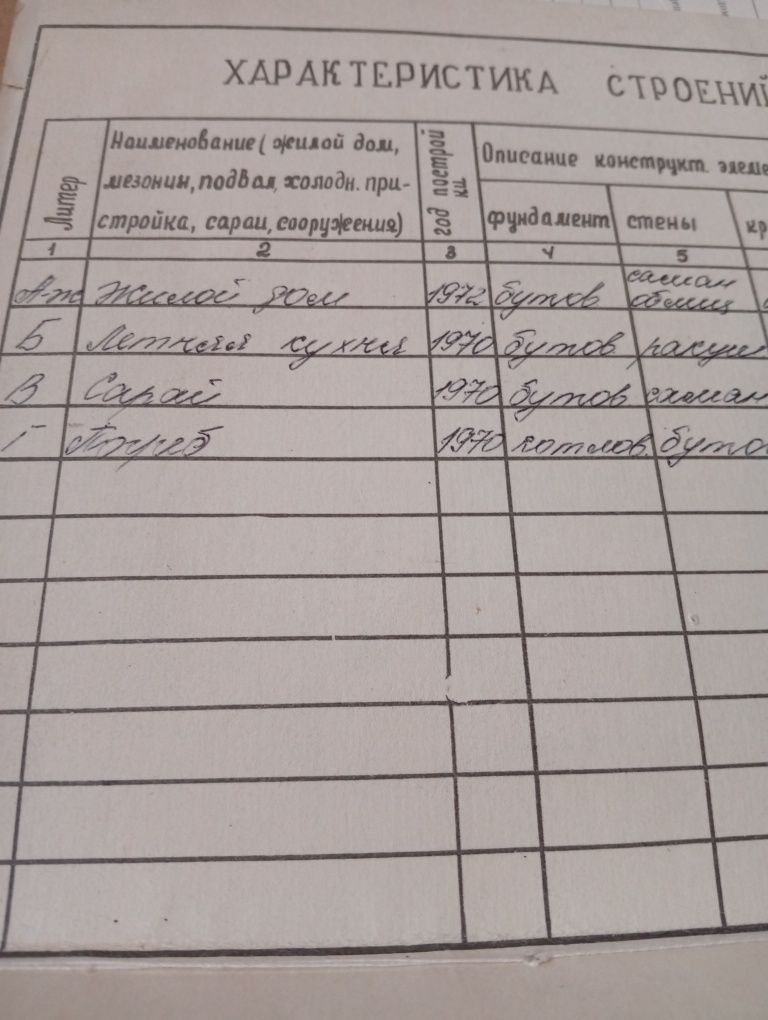 ХАРАКТЕРИСТИКА СТРОЕНИЙ
Литер
Наименование ( жилой дом,
мезонин, подвал, холодн. при-
стройка, сараи, сооружения)
год построй
ки
Описание конструкт. элеме
фундамент стены кр
1 2 3 4 5
А-ж Жилой дом 1972 бутов саман
облиц
Б Летняя кухня 1970 бутов ракуш
В Сарай 1970 бутов саман
Г Погреб 1970 котлов. буто